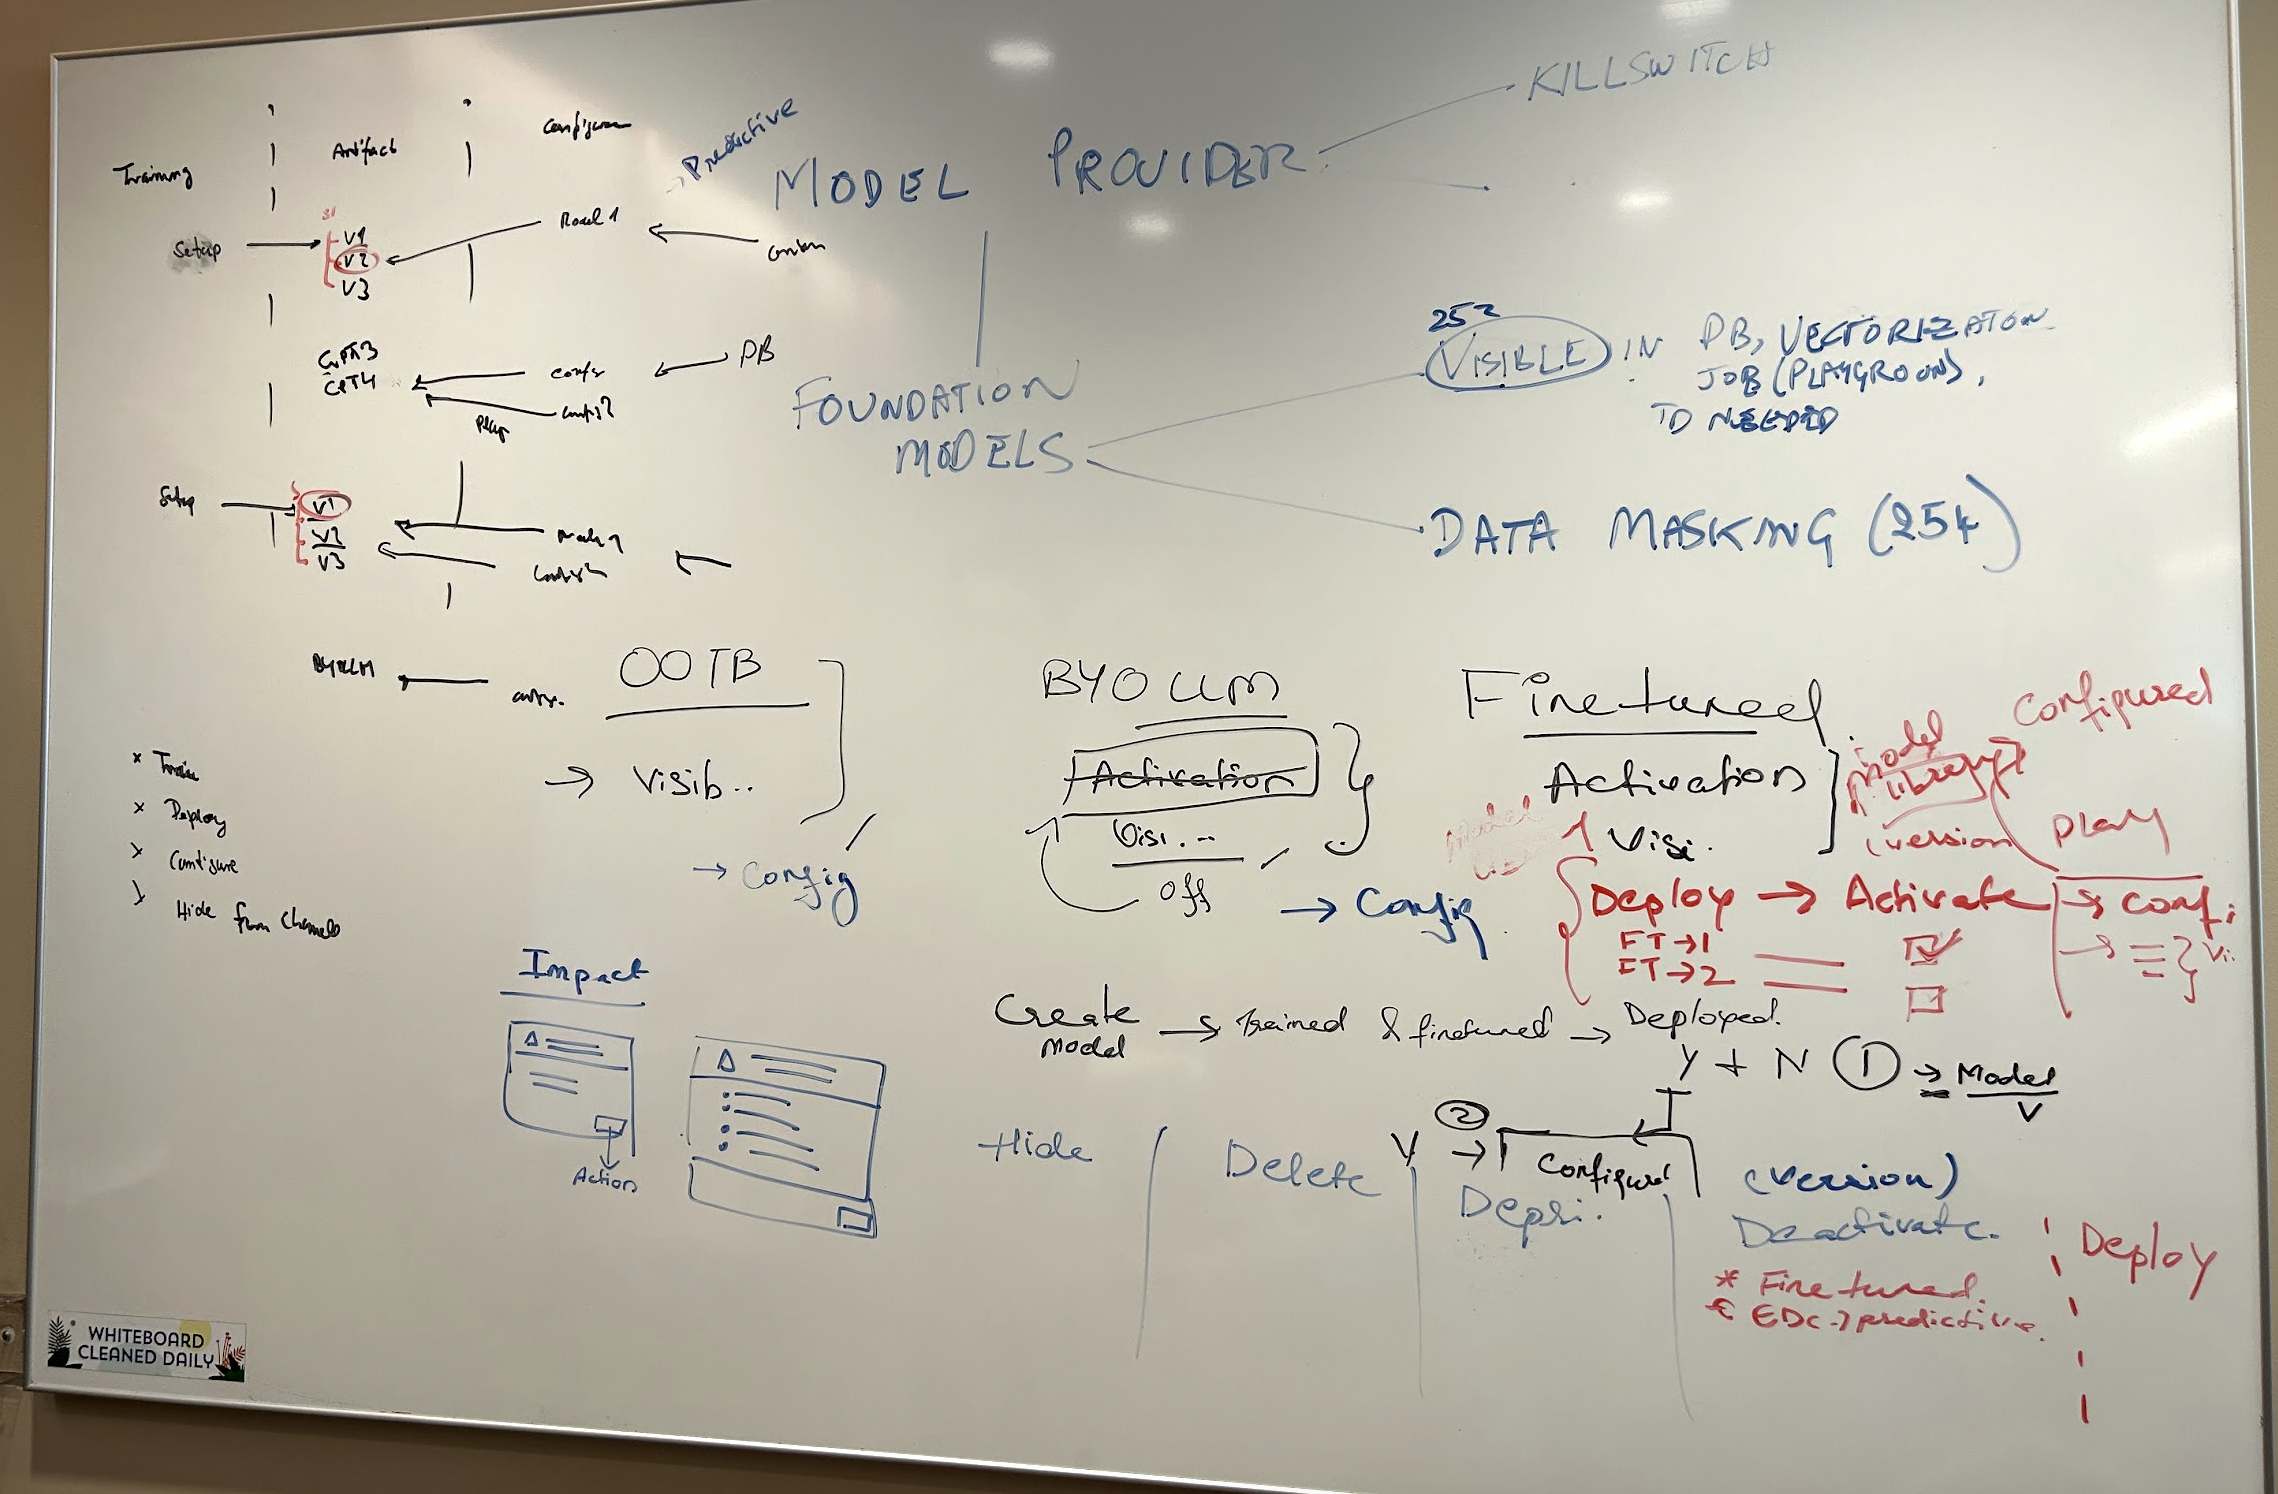 Training
Artifact
Predictive
MODEL PROVIDER
KILLSWITCH
Setup
V1
V2
V3
Model 1
GPT3
GPT4
PB
Play
FOUNDATION
MODELS
252
VISIBLE IN PB, VECTORIZATON
JOB (PLAYGROUND),
TD NEEDED
DATA MASKING (254)
Setup
V1
V2
V3
BYOLLM
OOTB
→ Visib..
→ Config
BYO LLM
Activation
Visi...
Off
→ Config
Finetuned
Activation
Visi.
Model
library
(version
Configured
Play
Deploy → Activate → Confi
FT → 1
FT → 2
Vi.
x Train
x Deploy
x Configure
Hide from Channels
Impact
Action
Create
Model → trained & finetuned → Deployed.
Y + N ① → Model
V
Hide
Delete
V ② →
Configured
Depri.
(version)
Deactivate.
* Finetuned.
EDC → predictive.
Deploy
WHITEBOARD
CLEANED DAILY